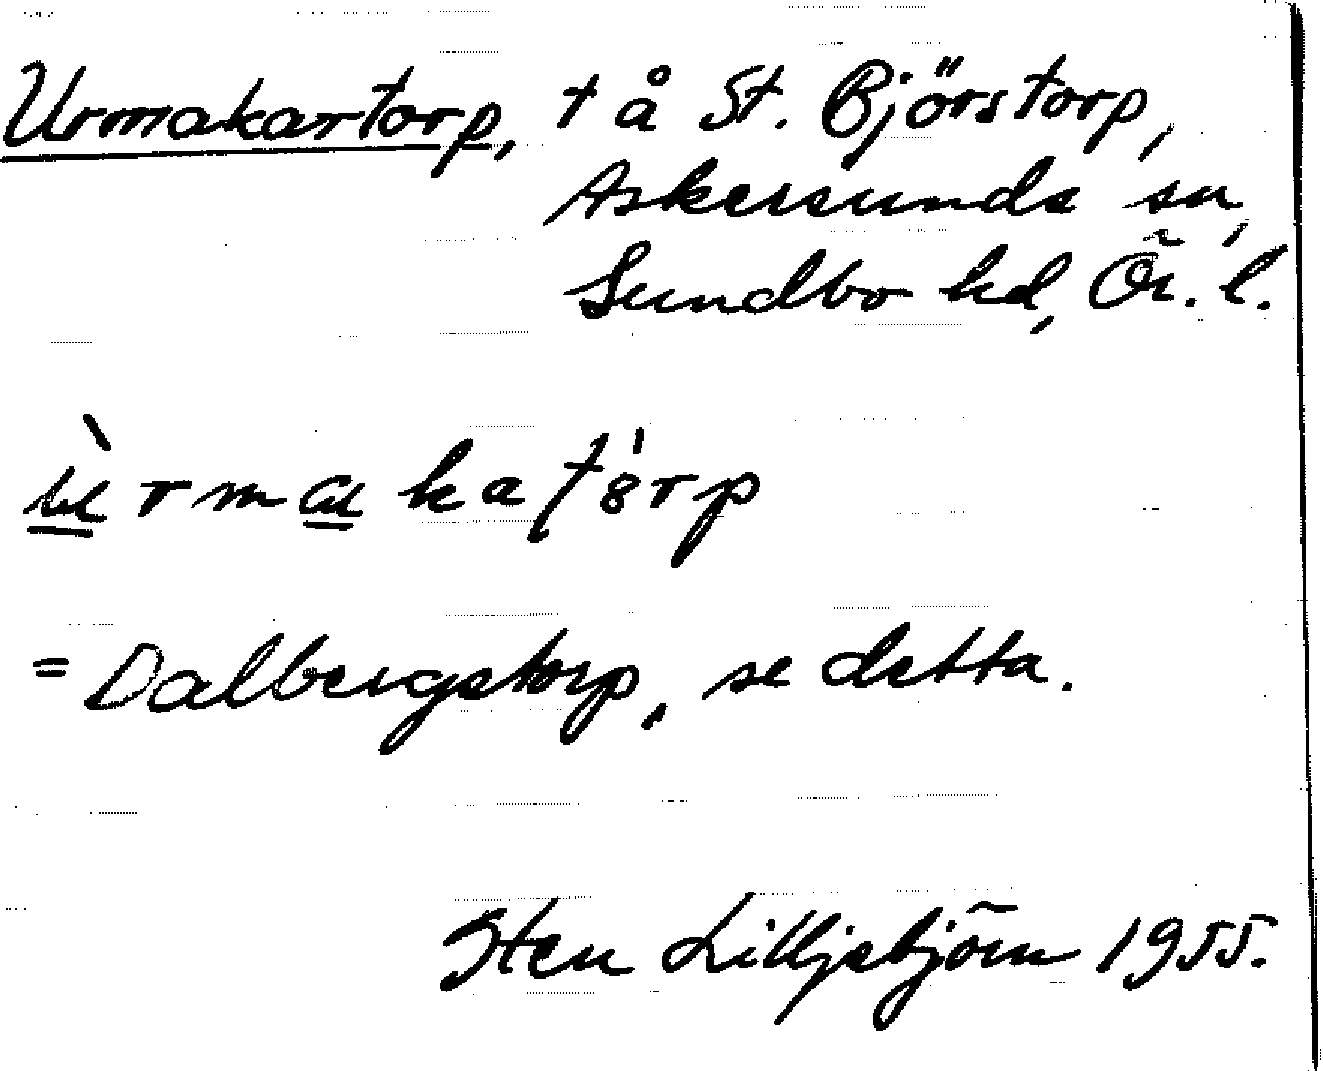 Urmakartorp, t å St. Björstorp,
Askersunds sn,
Sundbo hd, Ör. l.
ùrmakatórp
= Dalbergstorp, se detta.
Sten Lilljebjörn 1955.